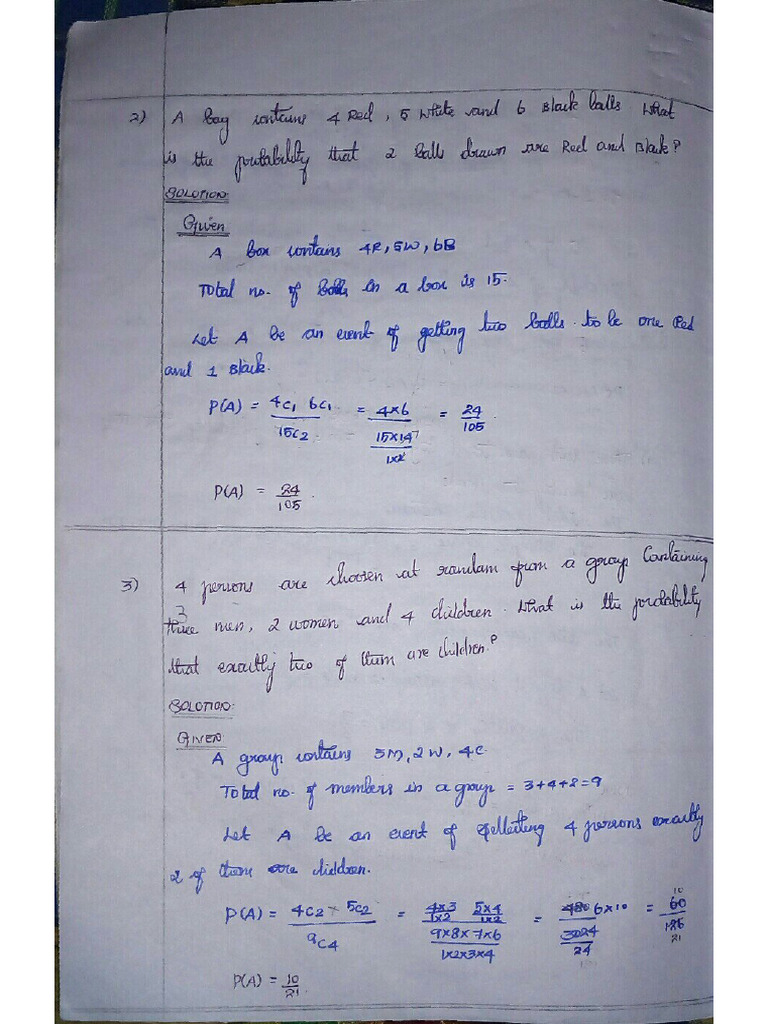 2) A bag contains 4 Red, 5 White and 6 Black balls What
is the probability that 2 balls drawn are Red and Black?
SOLUTION:
Given
A box contains 4R, 5W, 6B
Total no. of balls in a box is 15.
Let A be an event of getting two balls to be one Red
and 1 Black.
P(A) = 4C1 6C1 / 15C2 = 4×6 / (15×14 / 1×2) = 24/105
P(A) = 24/105.
3) 4 persons are choosen at random from a group Containing
3
three men, 2 women and 4 children. What is the probability
that exactly two of them are children?
SOLUTION:
GIVEN
A group contains 3M, 2W, 4C.
Total no. of members in a group = 3+4+2=9
Let A be an event of selleiting 4 persons exactly
2 of them are children.
P(A) = 4C2 5C2 / 9C4 = (4×3 / 1×2) (5×4 / 1×2) / (9×8×7×6 / 1×2×3×4) = 6×10 / (3024 / 24) = 60/126 10 21
P(A) = 10/21.